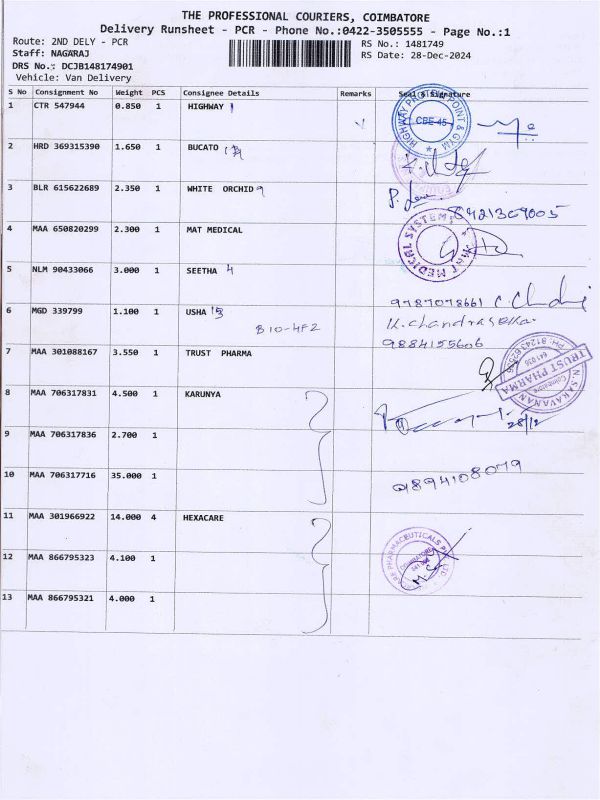 THE PROFESSIONAL COURIERS, COIMBATORE
Delivery Runsheet - PCR - Phone No.:0422-3505555 - Page No.:1
Route: 2ND DELY - PCR
Staff: NAGARAJ
DRS No.: DCJB148174901
Vehicle: Van Delivery
RS No.: 1481749
RS Date: 28-Dec-2024
S No Consignment No Weight PCS Consignee Details Remarks Seal & Signature
1 CTR 547944 0.850 1 HIGHWAY
CBE-45
2 HRD 369315390 1.650 1 BUCATO
3 BLR 615622689 2.350 1 WHITE ORCHID
8421369005
4 MAA 650820299 2.300 1 MAT MEDICAL
MAT MEDICAL SYSTEMS
5 NLM 90433066 3.000 1 SEETHA 4
9787078661
6 MGD 339799 1.100 1 USHA
B10-4F2
K.chandrasekar
9884155606
7 MAA 301088167 3.550 1 TRUST PHARMA
TRUST PHARMA
N.S.R
Coimbatore
8 MAA 706317831 4.500 1 KARUNYA
28/12
9 MAA 706317836 2.700 1
10 MAA 706317716 35.000 1
9894108079
11 MAA 301966922 14.000 4 HEXACARE
PHARMACEUTICALS
COIMBATORE
12 MAA 866795323 4.100 1
13 MAA 866795321 4.000 1